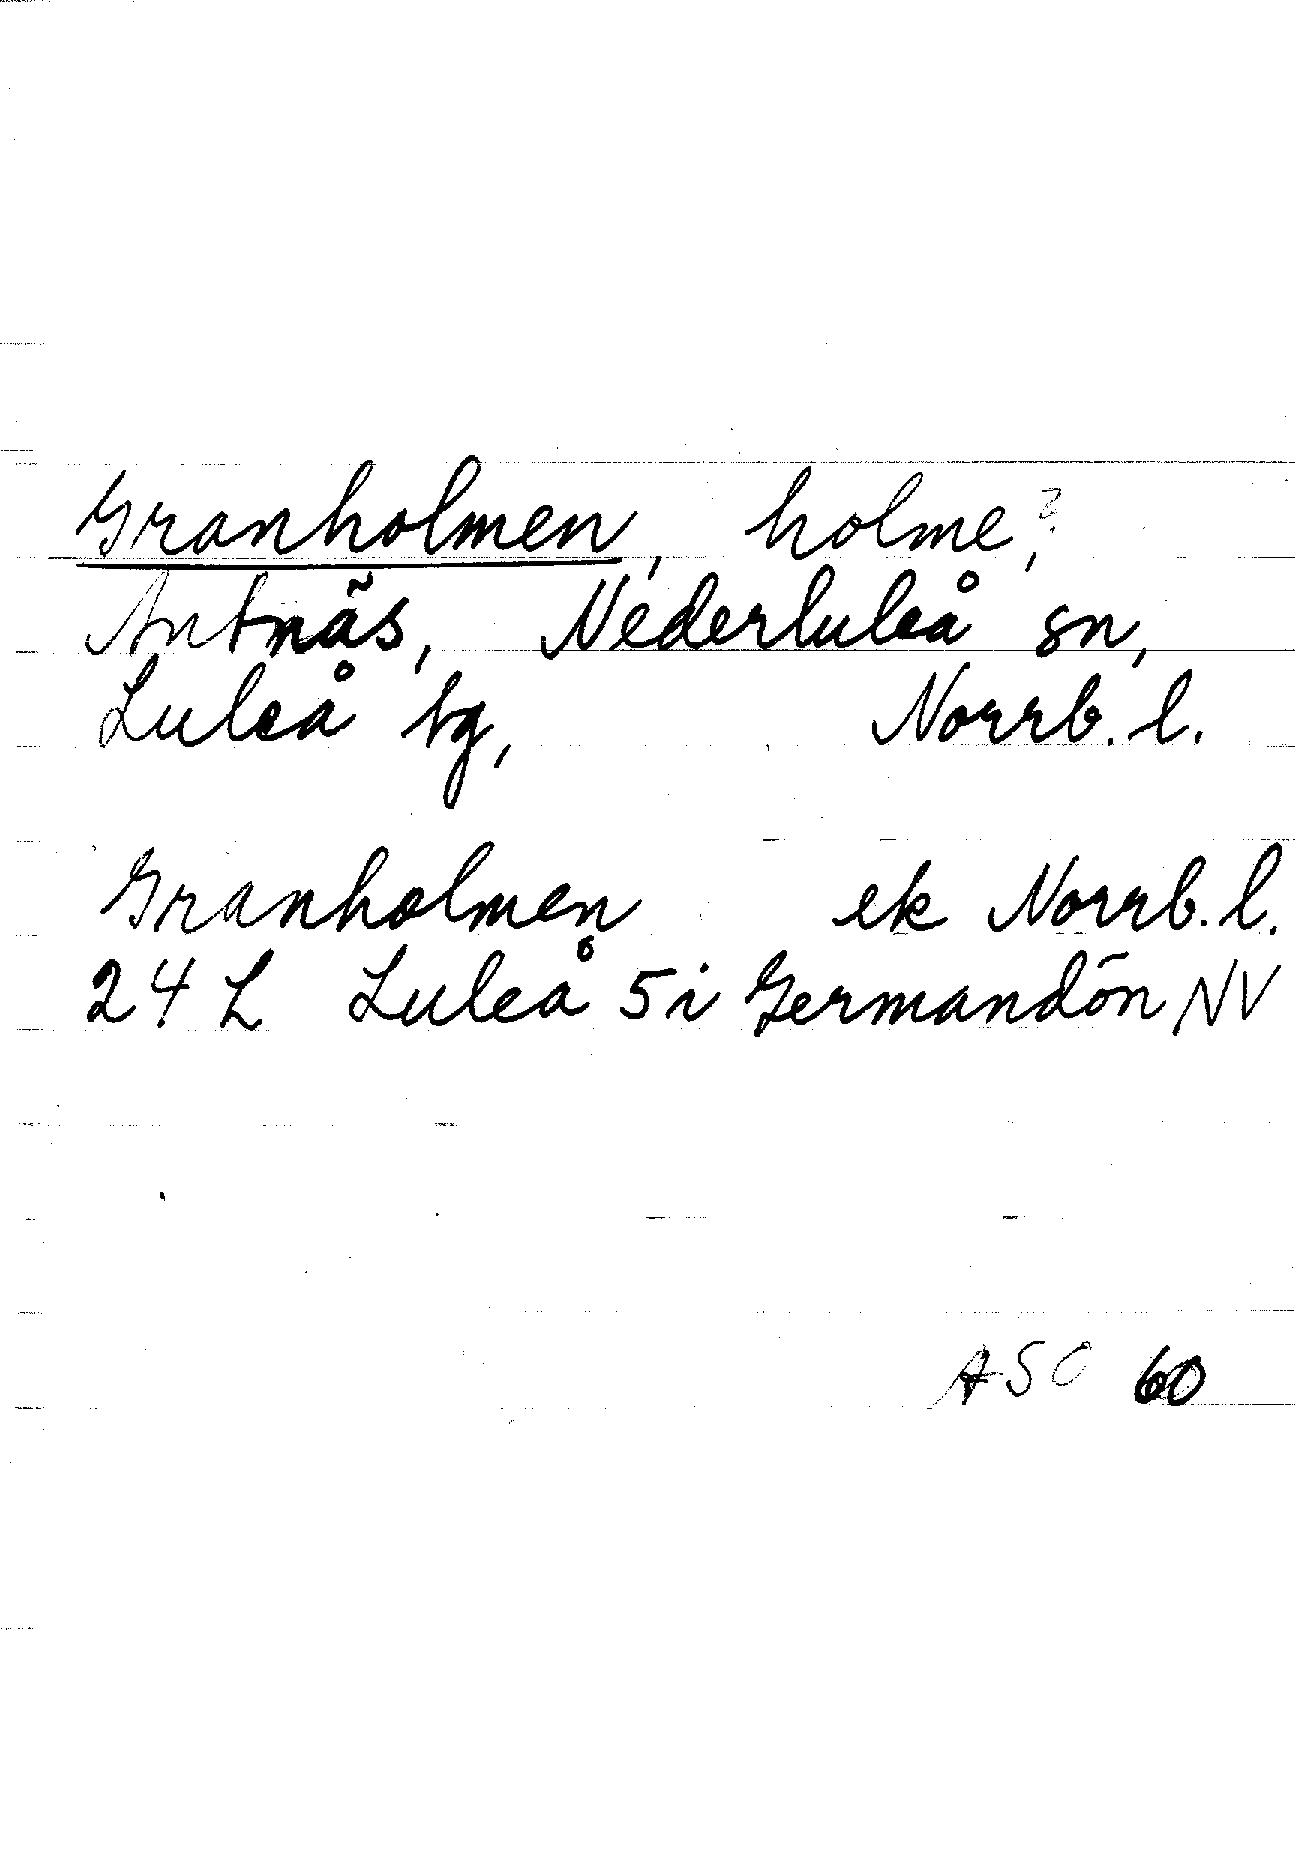 Granholmen, holme,?
Antnäs, Nederluleå sn,
Luleå tg, Norrb. l.
Granholmen ek Norrb. l.
24 L Luleå 5 i Germandön NV
ASC 60